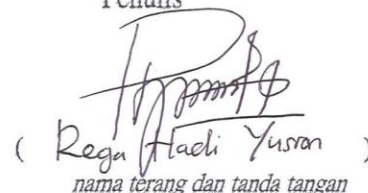 Penulis
( Rega Hadi Yusron )
nama terang dan tanda tangan